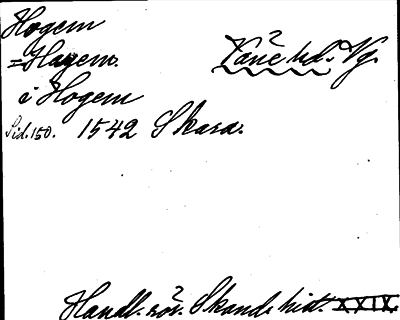 Hogem
=Hagem.
i Hogem
Låne hd. Vg.
Sid. 150. 1542 Skara.
Handl. rör. Skand. hist. XXIX